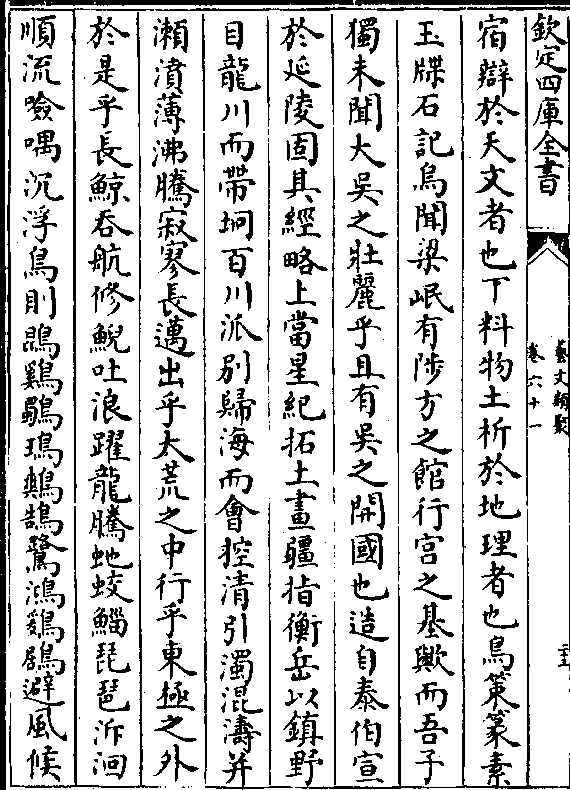 欽定四庫全書
藝文類聚
卷六十一
宿辯於天文者也下料物土析於地理者也烏策篆素
玉牒石記烏聞梁岷有陟方之館行宮之基歟而吾子
獨未聞大吳之壯麗乎且有吳之開國也造自泰伯宣
於延陵固其經略上當星紀拓土畫疆指衡岳以鎮野
目龍川而帶坰百川派別歸海而會控清引濁混濤并
瀨濆薄沸騰寂寥長邁出乎大荒之中行乎東極之外
於是乎長鯨吞航修鯢吐浪躍龍騰虵蛟鯔琵琶泝洄
順流噞喁沉浮鳥則鵾鷄鸀鳿鷫鵠鷺鴻鷄鶋避風候